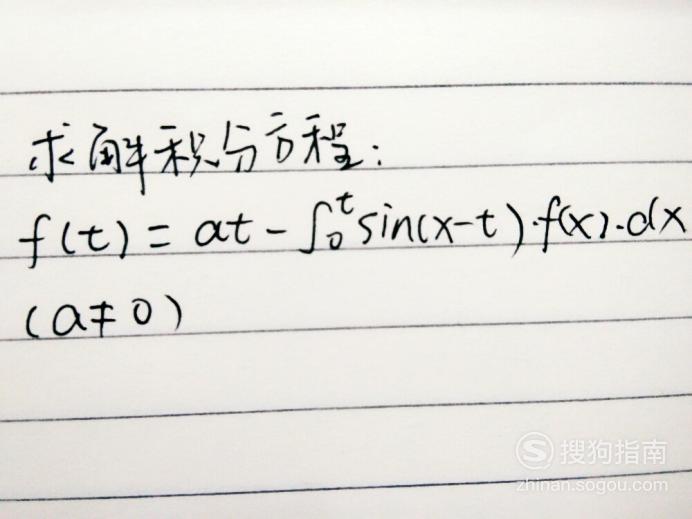 求解积分方程:
f(t) = at - ∫₀ᵗ sin(x-t)·f(x)·dx
(a≠0)
搜狗指南
zhinan.sogou.com